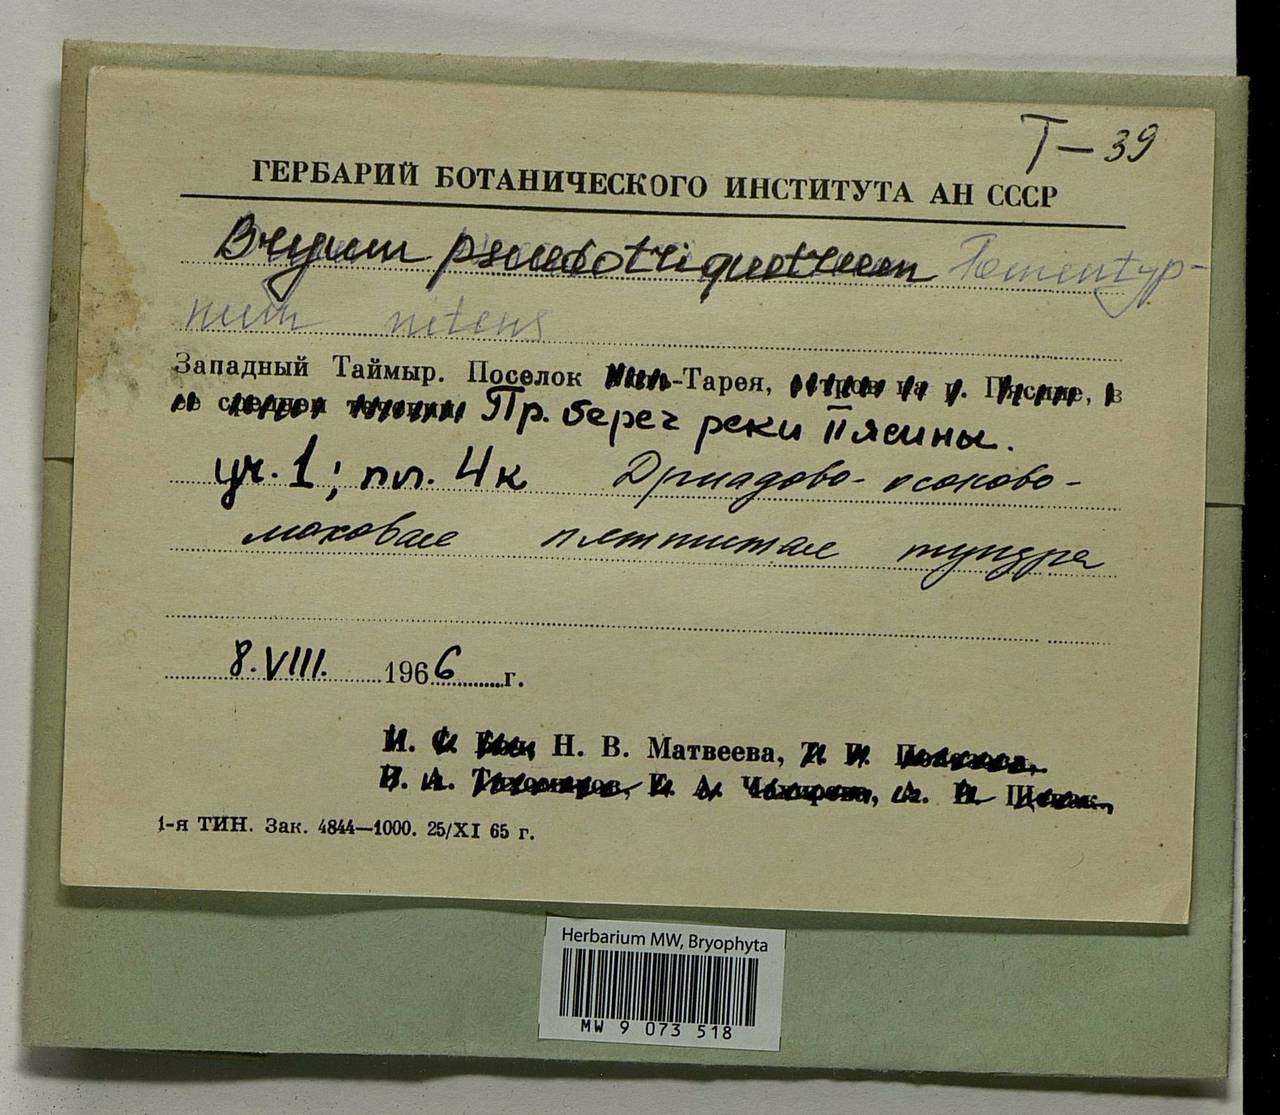 Т-39
ГЕРБАРИЙ БОТАНИЧЕСКОГО ИНСТИТУТА АН СССР
Bryum pseudotriquetrum Tomentyp-
num nitens
Западный Таймыр. Поселок -Тарея, на р. Пясине, в
ее среднем течении Пр. берег реки Пясины.
уч. 1; пл. 4к Дриадово-осоково-
моховая пятнистая тундра
8.VIII. 1966 г.
Н. В. Матвеева,
1-я ТИН. Зак. 4844—1000. 25/XI 65 г.
Herbarium MW, Bryophyta
MW 9 073 518